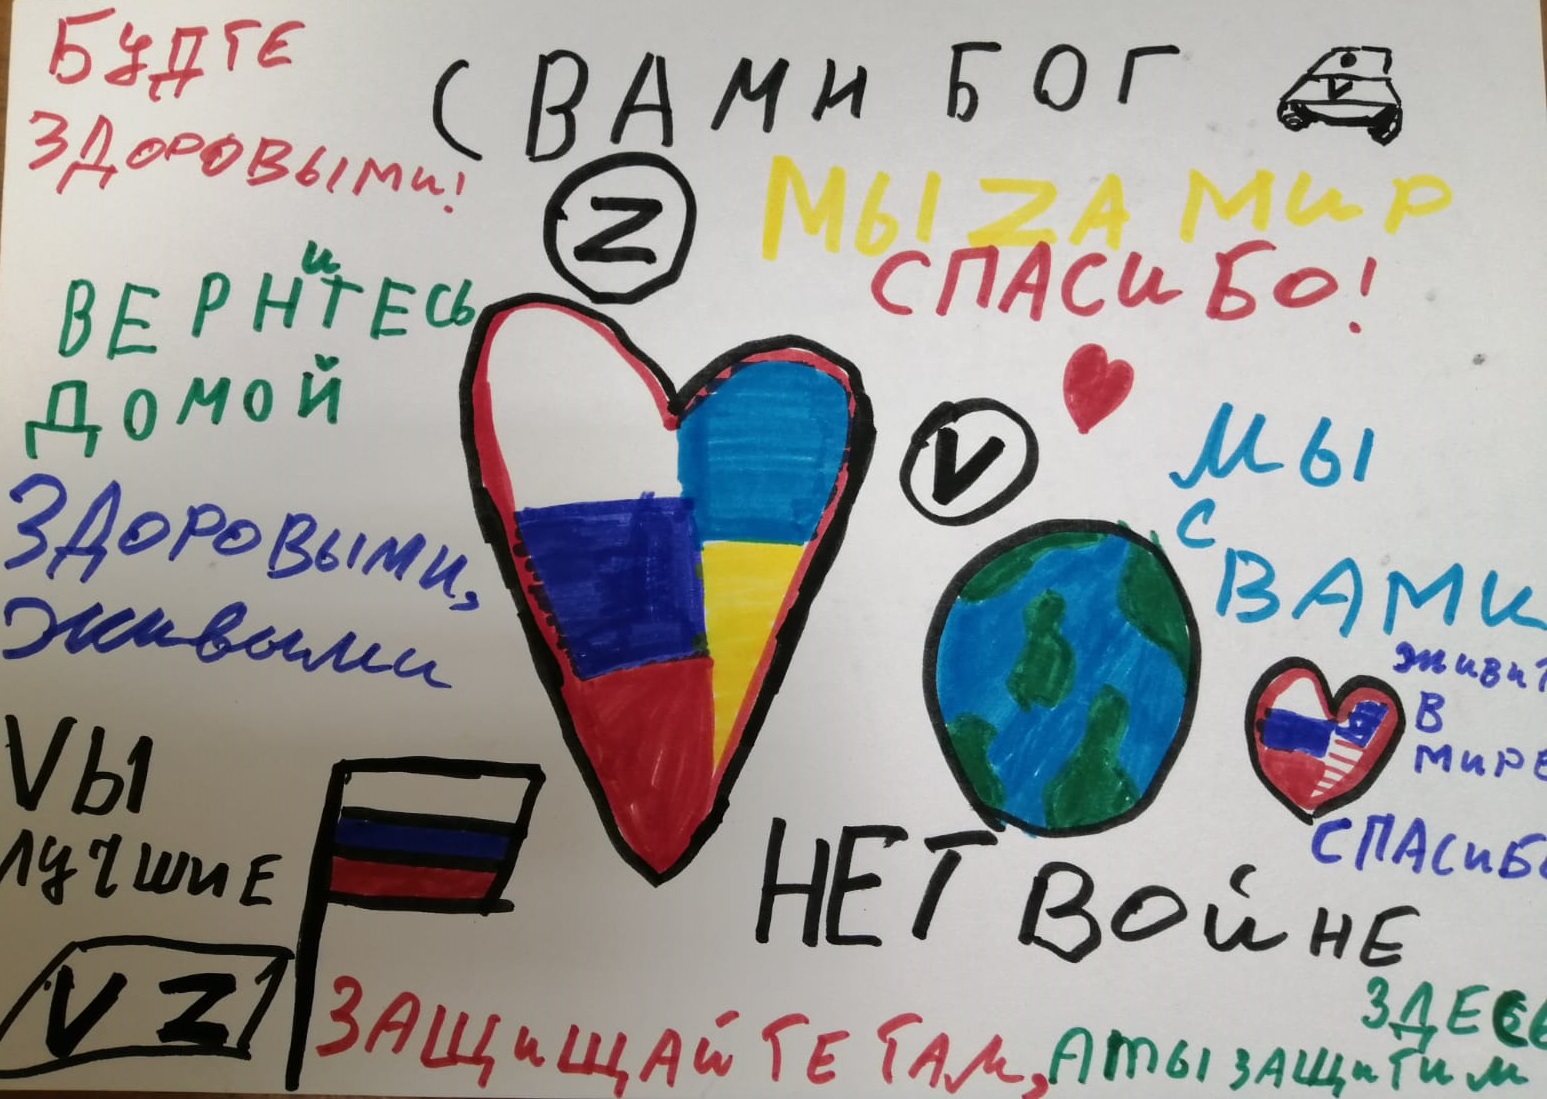 БУДТЕ
ЗДОРОВЫМИ!
С ВАМИ БОГ
V
Z
МЫ ZА МИР
СПАСИБО!
ВЕРНИТЕСЬ
ДОМОЙ
ЗДОРОВЫМИ,
живыми
V
МЫ
С
ВАМИ
живит
В
МИРЕ
СПАСИБО
VЫ
ЛУЧШИЕ
V Z
НЕТ ВОЙНЕ
ЗАЩИЩАЙТЕ ТАМ, А МЫ ЗАЩИТИМ
ЗДЕСЬ